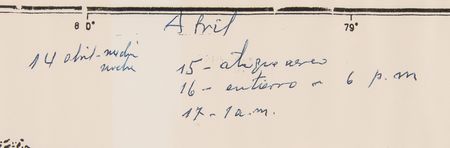 80°
79°
Abril
14 abril - noche
noche
15 - ataque aereo
16 - entierro - 6 p.m
17 - 1 a.m.